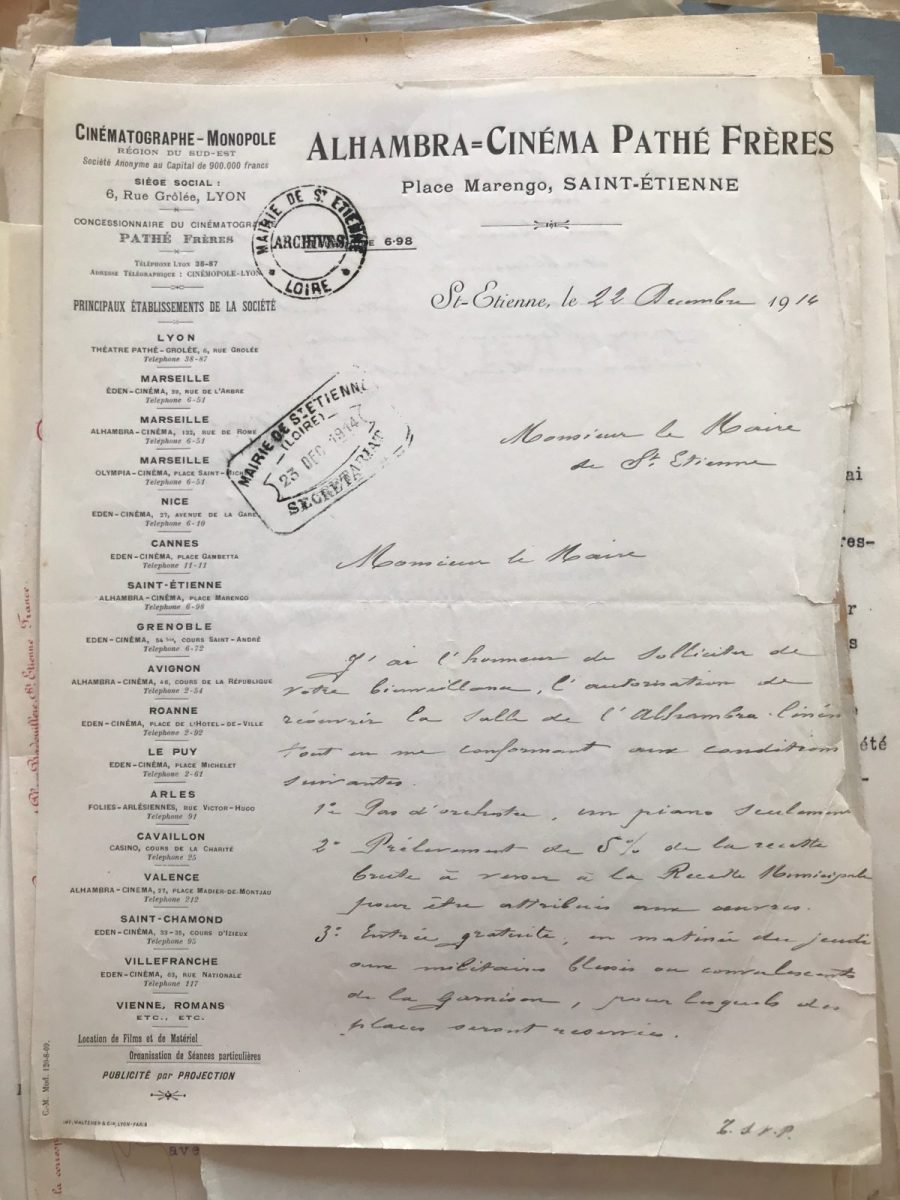 CINÉMATOGRAPHE-MONOPOLE
RÉGION DU SUD-EST
Société Anonyme au Capital de 900.000 francs
SIÈGE SOCIAL :
6, Rue Grôlée, LYON
CONCESSIONNAIRE DU CINÉMATOGRA
PATHÉ FRÈRES
TÉLÉPHONE 38-87
ADRESSE TÉLÉGRAPHIQUE : CINÉMOPOLE-LYON
PRINCIPAUX ÉTABLISSEMENTS DE LA SOCIÉTÉ
LYON
THÉATRE PATHÉ-GROLÉE, 6, RUE GROLÉE
Téléphone 38-87
MARSEILLE
ÉDEN-CINÉMA, 39, RUE DE L'ARBRE
Téléphone 6-51
MARSEILLE
ALHAMBRA-CINÉMA, 122, RUE DE ROME
Téléphone 6-51
MARSEILLE
OLYMPIA-CINÉMA, PLACE SAINT-MICH
Téléphone 6-51
NICE
EDEN-CINÉMA, 27, AVENUE DE LA GARE
Téléphone 6-10
CANNES
EDEN-CINÉMA, PLACE GAMBETTA
Téléphone 11-11
SAINT-ÉTIENNE
ALHAMBRA-CINÉMA, PLACE MARENGO
Téléphone 6-98
GRENOBLE
EDEN-CINÉMA, 54 bis, COURS SAINT-ANDRÉ
Téléphone 6-72
AVIGNON
ALHAMBRA-CINÉMA, 46, COURS DE LA RÉPUBLIQUE
Téléphone 2-54
ROANNE
EDEN-CINÉMA, PLACE DE L'HOTEL-DE-VILLE
Téléphone 2-92
LE PUY
EDEN-CINÉMA, PLACE MICHELET
Téléphone 2-61
ARLES
FOLIES-ARLÉSIENNES, RUE VICTOR-HUGO
Téléphone 91
CAVAILLON
CASINO, COURS DE LA CHARITÉ
Téléphone 25
VALENCE
ALHAMBRA-CINÉMA, 27, PLACE MADIER-DE-MONTJAU
Téléphone 212
SAINT-CHAMOND
EDEN-CINÉMA, 33-35, COURS D'IZIEUX
Téléphone 95
VILLEFRANCHE
EDEN-CINÉMA, 63, RUE NATIONALE
Téléphone 117
VIENNE, ROMANS
ETC., ETC.
Location de Films et de Matériel
Organisation de Séances particulières
PUBLICITÉ par PROJECTION
C.-M. Mod. 120-8-09.
IMP. WALTENER & Cie, LYON-PARIS
ALHAMBRA=CINÉMA PATHÉ FRÈRES
Place Marengo, SAINT-ÉTIENNE
6-98
MAIRIE DE St ETIENNE
ARCHIVES
LOIRE
St-Etienne, le 22 Decembre 1914
MAIRIE DE St ETIENNE
(LOIRE)
23 DEC 1914
SECRETARIAT
Monsieur le Maire
de St Etienne
Monsieur le Maire
J'ai l'honneur de solliciter de
votre bienveillance, l'autorisation de
réouvrir la salle de l'Alhambra-Ciném
tout en me conformant aux conditions
suivantes.
1° Pas d'orchestre, un piano seulement
2° Prélèvement de 5% de la recette
brute à verser à la Recette Municipale
pour être attribués aux œuvres.
3° Entrée gratuite, en matinée du jeudi
aux militaires blessés ou convalescents
de la garnison, pour lesquels des
places seront reservées.
T.S.V.P.
ai
res-
r
s
été
ave